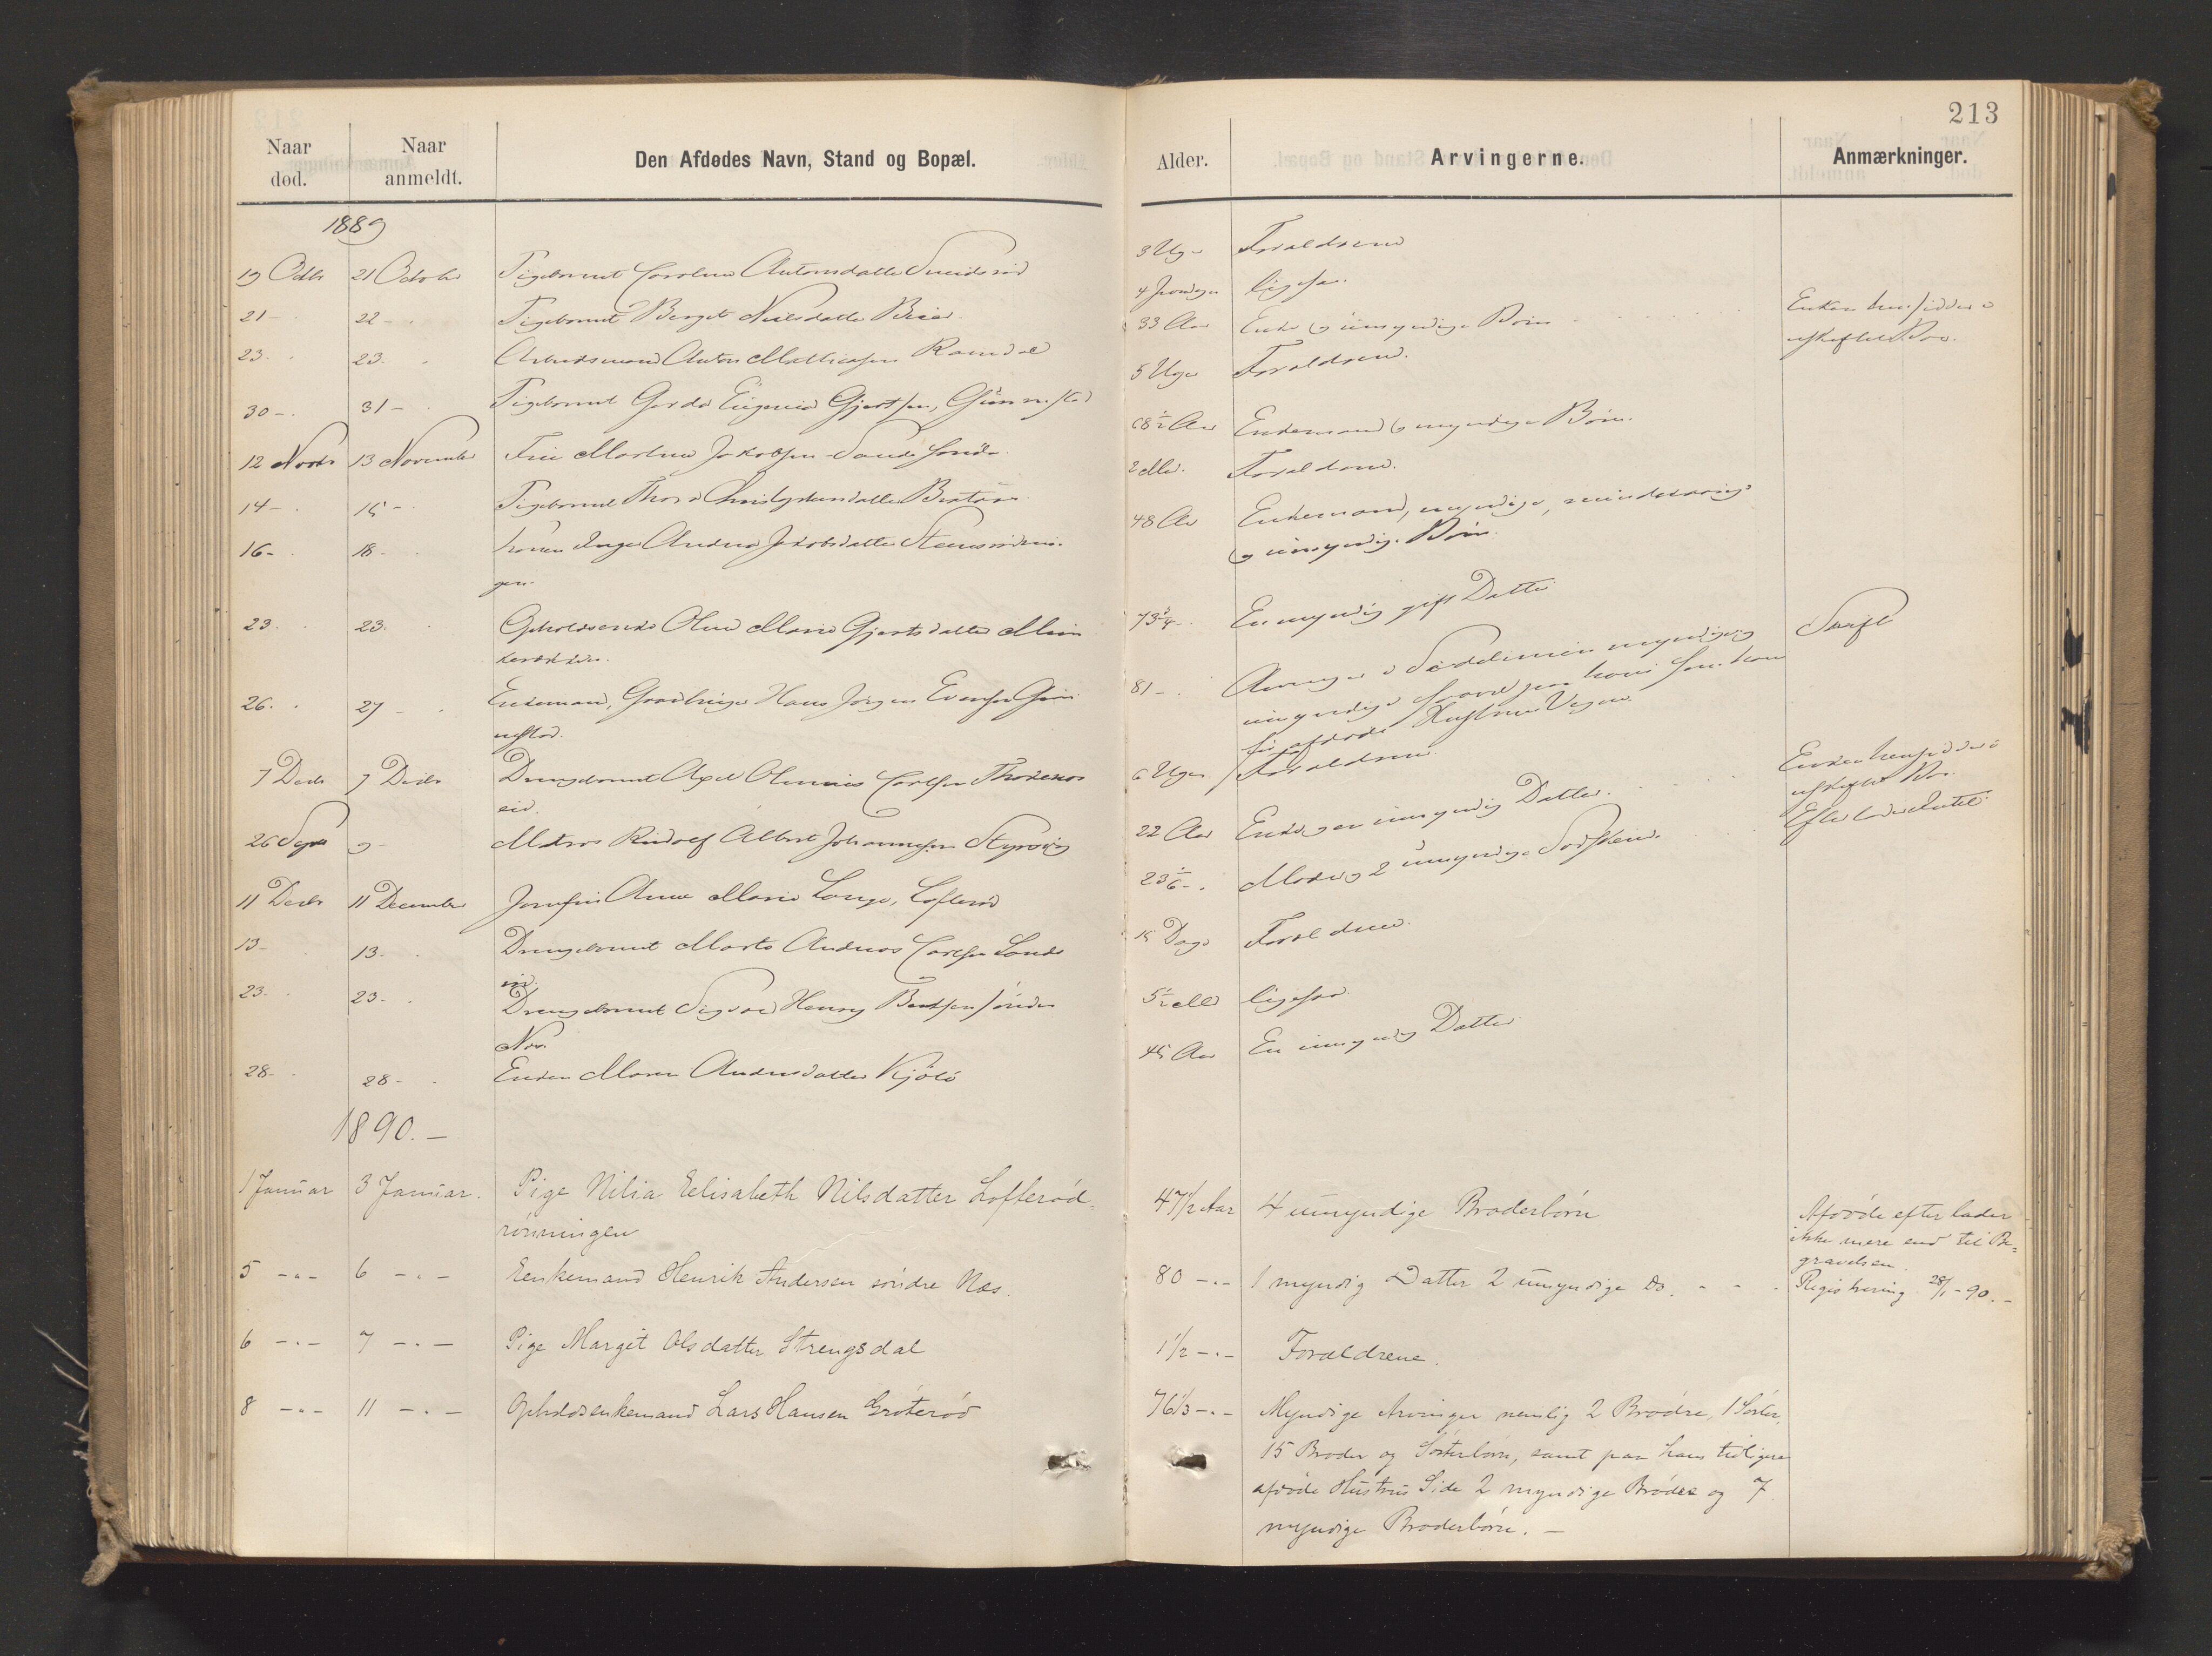 213
Naar død. Naar anmeldt. Den Afdødes Navn, Stand og Bopæl. Alder. Arvingerne. Anmærkninger.
1889
19 Octbr 21 October Pigebarnet Caroline Antonsdatter 3 Uger Forældrene
21 - 22 - Pigebarnet Berget Nielsdatter 4 ligesaa.
23. 23. Arbeidsmand Anton Mathiasen Ramdal 33 Aar Enke og umyndige Børn Enken hensidder i
uskiftet Bo.
30 - 31 - Pigebarnet Gerda Eugenia Gjertsen, Gunnestad 5 Uger Forældrene.
12 Novbr 13 November Martine Jakobsen 68½ Aar Enkemand og myndige Børn.
14 - 15 - Pigebarnet Thora 2 Md. Forældrene.
16 - 18 - Konen Inger Andrea Jakobsdatter 48 Aar Enkemand, myndige, mindreaarige
og umyndige Børn.
23. 23. Opholdsenke Oline Marie Gjertsdatter En myndig gift Datter
26. 27 - Enkemand, Gaardbruger Hans Jørgen Evensen Gun
nestad. 81 - Arvinger i Sidelinien myndige og
umyndige
afdøde Hustrues Vegne
7 Decbr 7 Decbr Drengebarnet Axel Carlsen
eid. 6 Uger Forældrene.
26 9 - Matros Rudolf Albert Johannesen Styrsvig 22 Aar Enke og en umyndig Datter. Enken hensidder i
uskiftet Bo.
11 Decbr 11 December Jomfru Anne Marie Lange, Lofterød 23 Moder og 2 umyndige Sødskende. Efterlader Intet.
13 - 13 - Drengebarnet Andreas Carlsen Sande
15 Dage Forældrene.
23. 23 - Drengebarnet Sigvard Henry Berntsen søndre
Nes. 5½ Md ligesaa
28 - 28 - Enken Maren Andersdatter Kjølø 45 Aar En umyndig Datter
1890. -
1 Januar 3 Januar. Pige Nilia Eelisabeth Nilsdatter Lofterød- 47½ Aar 4 umyndige Broderbørn Afdøde efterlader
rønningen ikke mere end til Be=
gravelsen.
5 -"- 6 -"- Eenkemand Henrik Andersen søndre Næs. 80 -"- 1 myndig Datter 2 umyndige do. - - Registrering 28/1-90. -
6 -"- 7 -"- Pige Margit Olsdatter Strengsdal 1½ -"- Forældrene.
8 -"- 11 -"- Opholdsenkemand Lars Hansen Grøterød 76⅓ -"- Myndige Arvinger nemlig 2 Brødre, 1 Søster,
15 Broder og Søsterbørn, samt paa hans tidligere
afdøde Hustrus Side 2 myndige Brødre og 7
myndige Broderbørn. -